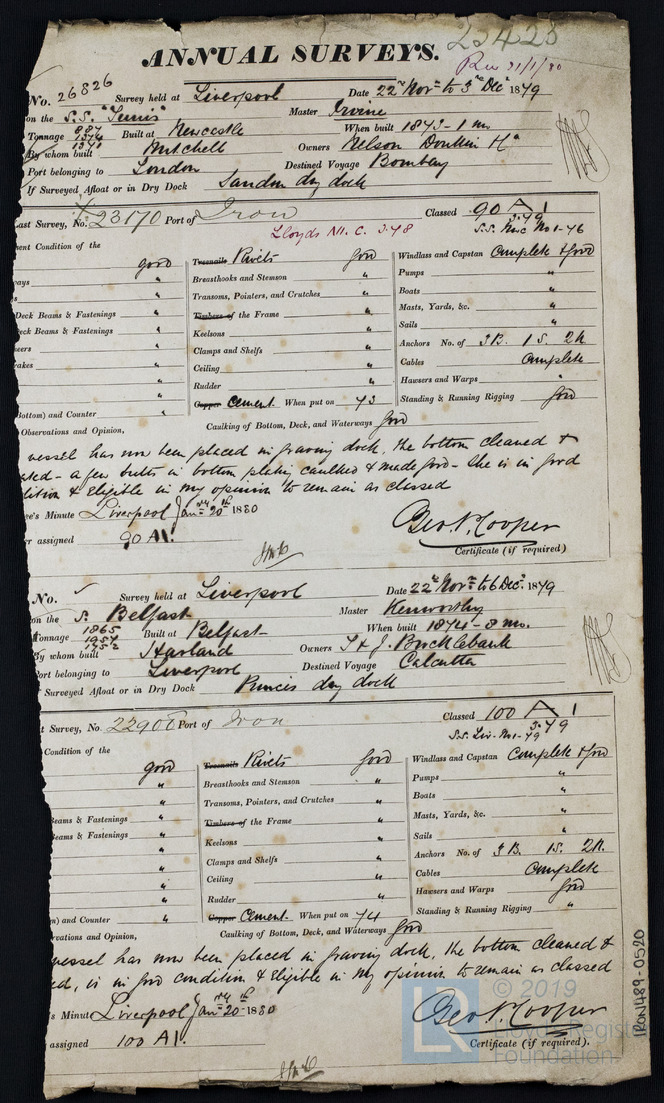 25425
ANNUAL SURVEYS.
Rec 21/1/80
No. 26826 Survey held at Liverpool Date 22nd Nov to 3rd Dec 1879
on the S.S. "Tunis" Master Irvine
Tonnage 1376 Built at Newcastle When built 1873 - 1 mo.
1341
By whom built Mitchell Owners Nelson Donkin &Co
Port belonging to London Destined Voyage Bombay
If Surveyed Afloat or in Dry Dock Sandon dry dock
Last Survey, No. 23170 Port of Iron Classed 90 A 1
3.79
Lloyds M.C. 3.78 S.S. Nwc No 1-76
ent Condition of the
good Treenails Rivets good Windlass and Capstan Complete & Good
ays " Breasthooks and Stemson " Pumps "
s " Transoms, Pointers, and Crutches " Boats "
Deck Beams & Fastenings " Timbers of the Frame " Masts, Yards, &c. "
eck Beams & Fastenings " Keelsons " Sails "
wers " Clamps and Shelfs " Anchors No. of 3B. 1S. 2K
rakes " Ceiling " Cables Complete
" Rudder " Hawsers and Warps "
" Copper Cement. When put on 73 Standing & Running Rigging good
Bottom) and Counter " Caulking of Bottom, Deck, and Waterways good
Observations and Opinion,
vessel has now been placed in graving dock, the bottom cleaned &
ated - a few butts in bottom plating caulked & made good - She is in good
dition & Eligible in my opinion to remain as classed
ee's Minute Liverpool Jany 20th 1880
r assigned 90 A1. Geo. N. Cooper
Certificate (if required)
No. Survey held at Liverpool Date 22nd Nov to 6 Dec. 1879
on the S. Belfast Master Kenworthy
Tonnage 1865 Built at Belfast When built 1874 - 8 mo.
1957
By whom built Harland Owners T & J. Brocklebank
ort belonging to Liverpool Destined Voyage Calcutta
Surveyed Afloat or in Dry Dock Princes dry dock
t Survey, No. 22906 Port of Iron Classed 100 A 1
3.79
S.S. Liv. No 1-79
Condition of the
good Treenails Rivets good Windlass and Capstan Complete & Good
" Breasthooks and Stemson " Pumps "
" Transoms, Pointers, and Crutches " Boats "
Beams & Fastenings " Timbers of the Frame " Masts, Yards, &c. "
Beams & Fastenings " Keelsons " Sails "
" Clamps and Shelfs " Anchors No. of 3B. 1S. 2K.
" Ceiling " Cables Complete
" Rudder " Hawsers and Warps good
m) and Counter " Copper Cement. When put on 74 Standing & Running Rigging "
rvations and Opinion, Caulking of Bottom, Deck, and Waterways good
vessel has now been placed in graving dock, the bottom cleaned &
ed, is in good condition & Eligible in my opinion to remain as classed
s Minute Liverpool Jany 20th 1880
assigned 100 A1. Geo. N. Cooper
Certificate (if required).
© 2019
LR Lloyd's Register
Foundation
RON1489-0520